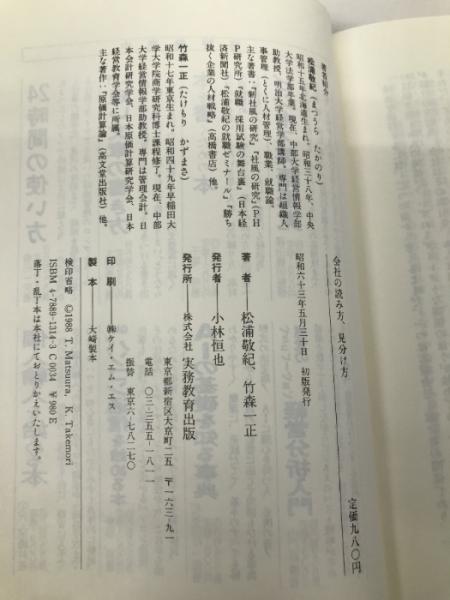 著者紹介
松浦敬紀（まつうら たかのり）
昭和十五年北海道生まれ。昭和三十八年、中央
大学法学部卒業。現在、中部大学経営情報学部
助教授、明治大学経営学部講師。専門は組織人
事管理（とくに人材管理）、職業、就職論。
主な著書：『新社風の研究』『社風の研究』（PH
P研究所）『就職 採用試験の舞台裏』（日本経
済新聞社）『松浦敬紀の就職ゼミナール』『勝ち
抜く企業の人材戦略』（高橋書店）他。
竹森一正（たけもり かずまさ）
昭和十七年東京生まれ。昭和四十九年早稲田大
学大学院商学研究科博士課程修了。現在、中部
大学経営情報学部助教授。専門は管理会計。日
本会計研究学会、日本原価計算研究学会、日本
経営教育学会等に所属。
主な著作：『原価計算論』（高文堂出版社）他。
会社の読み方、見分け方
昭和六十三年五月三十日 初版発行
定価九八〇円
著者 松浦敬紀、竹森一正
発行者 小林恒也
発行所 株式会社 実務教育出版
東京都新宿区大京町二五 〒一六三-九一
電話 〇三-三五五-一八一一
振替 東京六-七八二七〇
印刷 ㈱ケイ・エム・エス
製本 大崎製本
検印省略 ©1988 T. Matsuura, K. Takemori
ISBM 4-7889-1314-3 C 0034 ¥ 980 E
落丁・乱丁本は本社にておとりかえいたします。